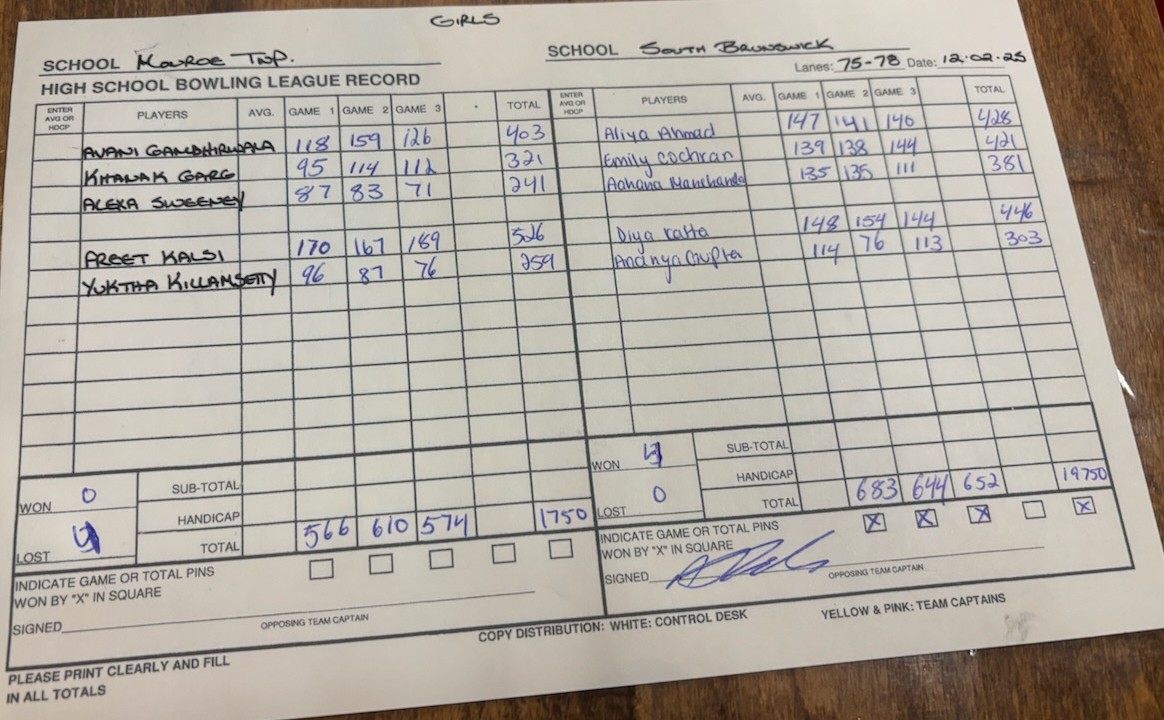 GIRLS
SCHOOL Monroe Twp.
HIGH SCHOOL BOWLING LEAGUE RECORD
ENTER AVG OR HDCP PLAYERS AVG. GAME 1 GAME 2 GAME 3 TOTAL
AVANI GAMBHIRWALA 118 159 126 403
KHANAK GARG 95 114 112 321
ALEXA SWEENEY 87 83 71 241
PREET KALSI 170 167 189 526
YUKTHA KILLAMSETTY 96 87 76 259
WON 0
LOST 4
SUB-TOTAL
HANDICAP
TOTAL 566 610 574 1750
INDICATE GAME OR TOTAL PINS
WON BY "X" IN SQUARE
SIGNED
OPPOSING TEAM CAPTAIN
SCHOOL South Brunswick
Lanes: 75-78 Date: 12.02.25
ENTER AVG OR HDCP PLAYERS AVG. GAME 1 GAME 2 GAME 3 TOTAL
Aliya Ahmad 147 141 140 428
Emily Cochran 139 138 144 421
Aahana Manchanda 135 135 111 381
Diya Katta 148 154 144 446
Ananya Gupta 114 76 113 303
WON 4
LOST 0
SUB-TOTAL
HANDICAP
TOTAL 683 644 652 19750
INDICATE GAME OR TOTAL PINS
WON BY "X" IN SQUARE X X X X
SIGNED
OPPOSING TEAM CAPTAIN
COPY DISTRIBUTION: WHITE: CONTROL DESK YELLOW & PINK: TEAM CAPTAINS
PLEASE PRINT CLEARLY AND FILL
IN ALL TOTALS